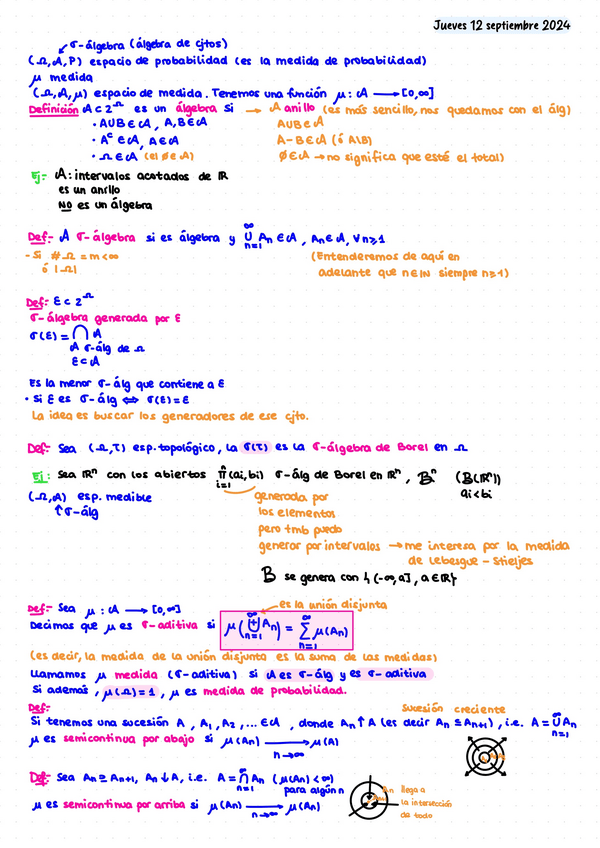 Jueves 12 septiembre 2024
σ-álgebra (álgebra de cjtos)
(Ω, A, P) espacio de probabilidad (es la medida de probabilidad)
μ medida
(Ω, A, μ) espacio de medida. Tenemos una función μ: A ⟶ [0,∞]
Definición A ⊂ 2^Ω es un álgebra si → A anillo (es más sencillo, nos quedamos con el álg)
· A∪B ∈ A, A,B ∈ A    A∪B ∈ A
· A^c ∈ A, A ∈ A    A-B ∈ A (ó A\B)
· Ω ∈ A (el ∅ ∈ A)    ∅ ∈ A → no significa que esté el total)
Ej:- A: intervalos acotados de ℝ
es un anillo
NO es un álgebra
Def:- A σ-álgebra si es álgebra y ∪_{n=1}^∞ An ∈ A, An ∈ A, ∀n≥1
- Si #Ω = m < ∞    (Entenderemos de aquí en
ó |Ω|    adelante que n∈ℕ siempre n≥1)
Def: Ɛ ⊂ 2^Ω
σ-álgebra generada por Ɛ
σ(Ɛ) = ∩ A
A σ-álg de Ω
Ɛ ⊂ A
Es la menor σ-álg que contiene a Ɛ
· Si Ɛ es σ-álg ⟺ σ(Ɛ) = Ɛ
La idea es buscar los generadores de ese cjto.
Def:- Sea (Ω, τ) esp. topológico, la σ(τ) es la σ-álgebra de Borel en Ω
Ej: Sea ℝ^n con los abiertos ∏_{i=1}^n (ai, bi) σ-álg de Borel en ℝ^n, B^n (B(ℝ^n))
ai < bi
(Ω, A) esp. medible    generada por
↑ σ-álg    los elementos
pero tmb puedo
generar por intervalos → me interesa por la medida
de Lebesgue - Stieljes
B se genera con {(-∞, a], a ∈ ℝ}
Def:- Sea μ: A ⟶ [0,∞]    es la unión disjunta
Decimos que μ es σ-aditiva si μ(⊎_{n=1}^∞ An) = ∑_{n=1}^∞ μ(An)
(es decir, la medida de la unión disjunta es la suma de las medidas)
Llamamos μ medida (σ-aditiva) si A es σ-álg y es σ-aditiva
Si además, μ(Ω) = 1, μ es medida de probabilidad.
Def:-    Sucesión creciente
Si tenemos una sucesión A, A1, A2, ... ∈ A, donde An ↑ A (es decir An ⊆ An+1), i.e. A = ∪_{n=1}^∞ An
μ es semicontinua por abajo si μ(An) ⟶_{n→∞} μ(A)
Def:- Sea An ⊇ An+1, An ↓ A, i.e. A = ∩_{n=1}^∞ An (μ(An) < ∞)
para algún n
μ es semicontinua por arriba si μ(An) ⟶_{n→∞} μ(An)
An llega a
la intersección
de todo